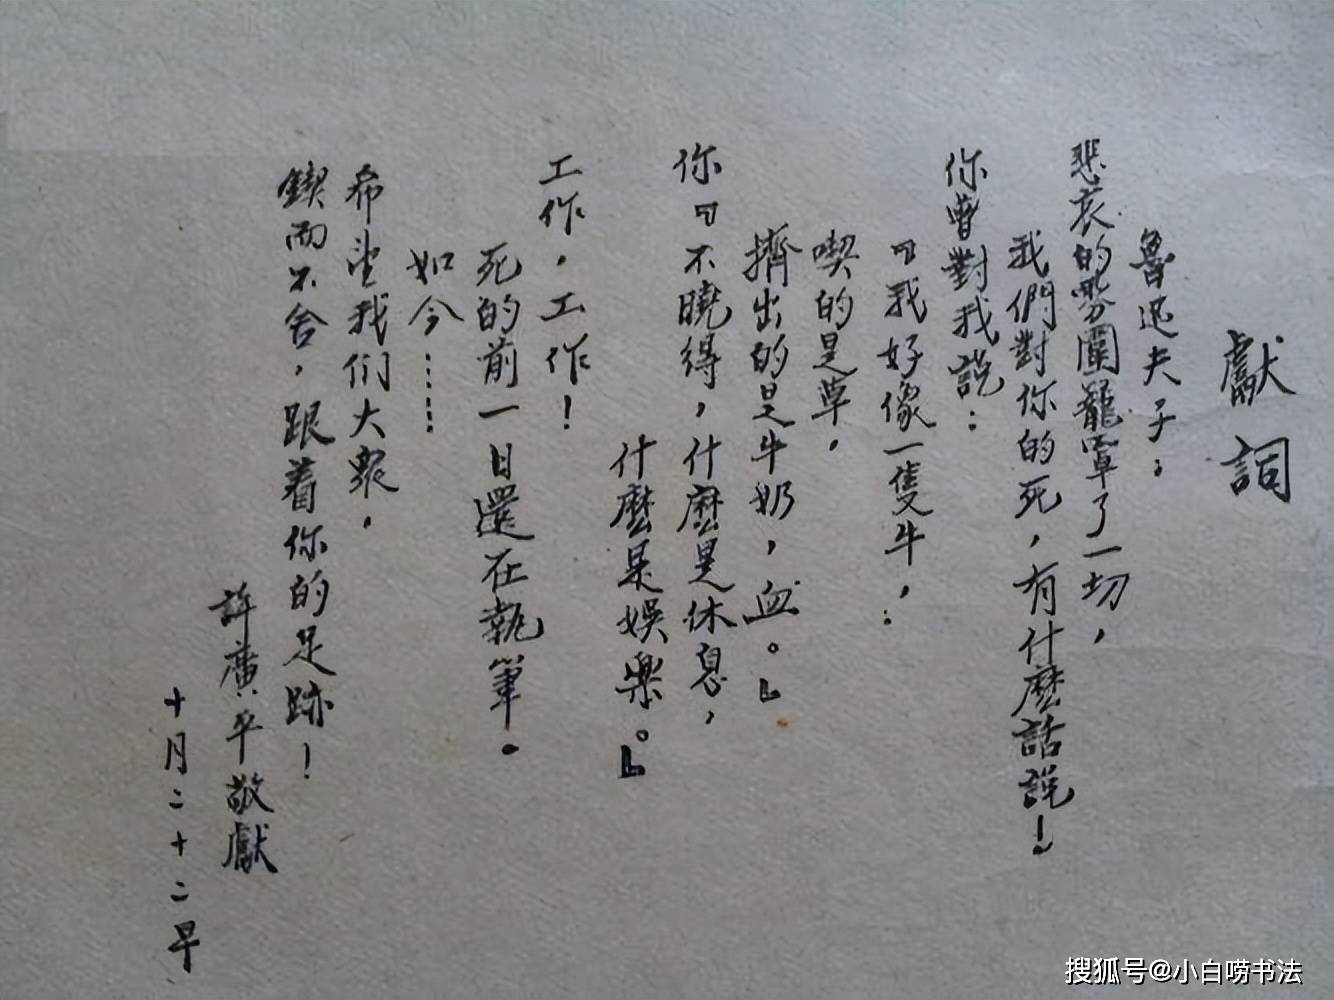 獻詞
魯迅夫子：
悲哀的雰圍籠罩了一切，
我們對你的死，有什麽話說！
你曾對我說：
『我好像一隻牛，
喫的是草，
擠出的是牛奶，血。』
你『不曉得，什麽是休息，
什麽是娛樂。』
工作，工作！
死的前一日還在執筆。
如今……
希望我们大眾，
鍥而不舍，跟着你的足跡！
許廣平敬獻
十月二十二早
搜狐号@小白唠书法